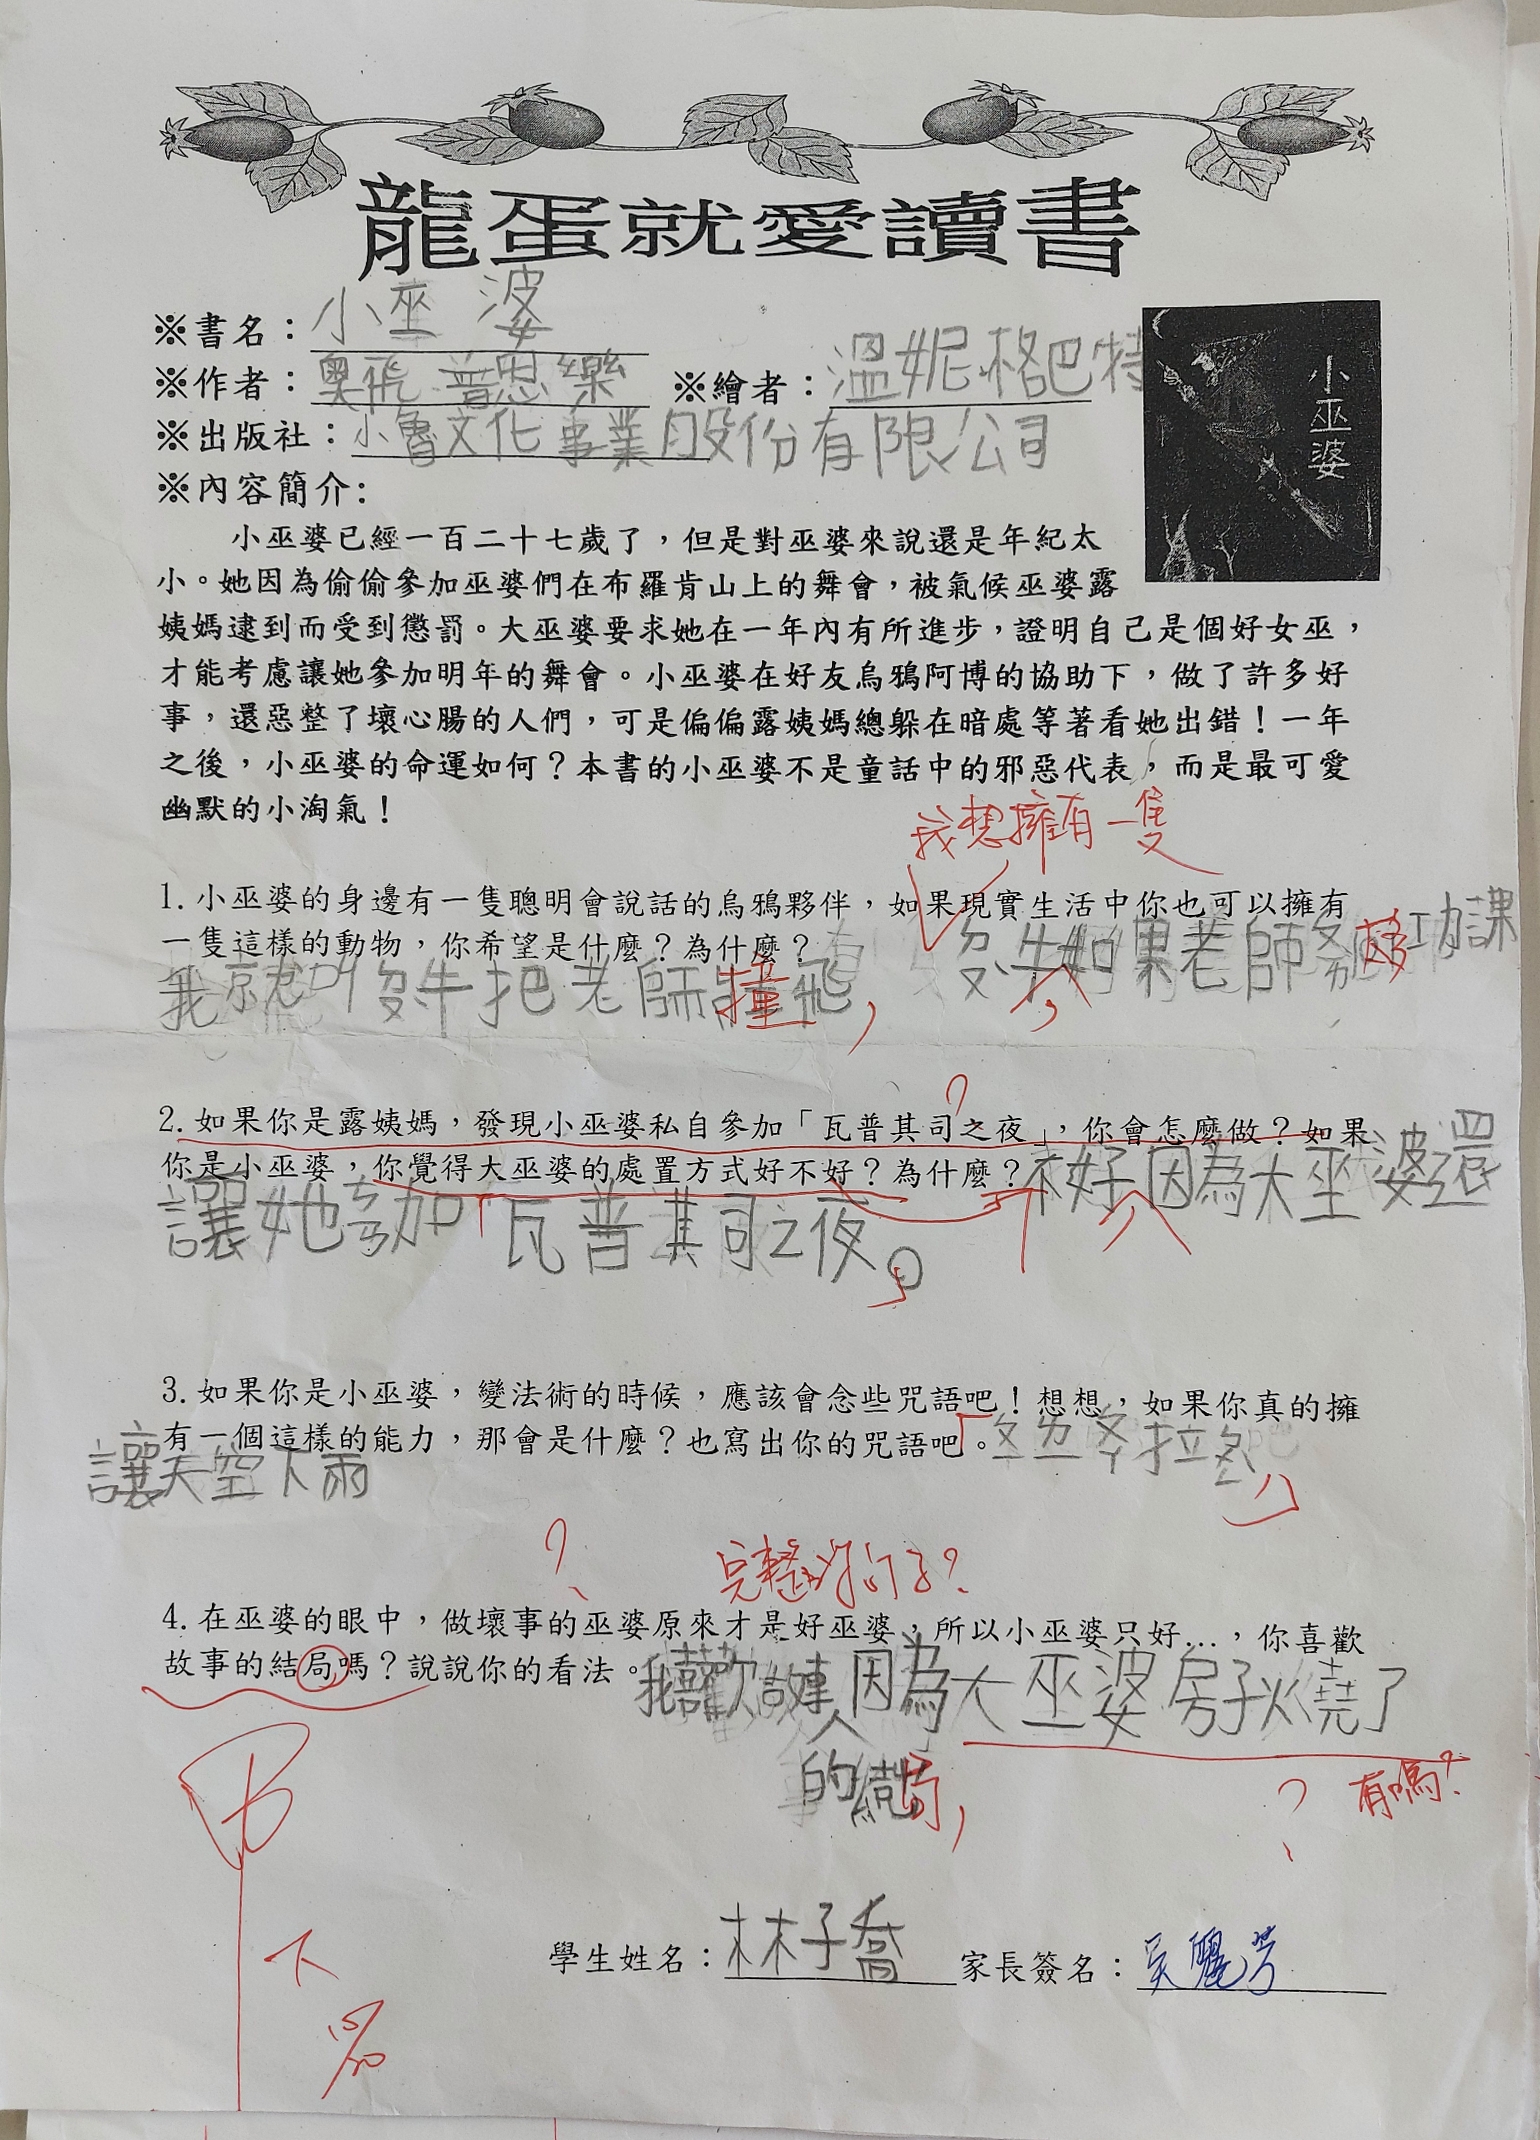 龍蛋就愛讀書
※書名：小巫婆
※作者：奧飛 普思樂 ※繪者：溫妮.格巴特
※出版社：小魯文化事業股份有限公司
小巫婆
※內容簡介:
小巫婆已經一百二十七歲了，但是對巫婆來說還是年紀太
小。她因為偷偷參加巫婆們在布羅肯山上的舞會，被氣候巫婆露
姨媽逮到而受到懲罰。大巫婆要求她在一年內有所進步，證明自己是個好女巫，
才能考慮讓她參加明年的舞會。小巫婆在好友烏鴉阿博的協助下，做了許多好
事，還惡整了壞心腸的人們，可是偏偏露姨媽總躲在暗處等著看她出錯！一年
之後，小巫婆的命運如何？本書的小巫婆不是童話中的邪惡代表，而是最可愛
幽默的小淘氣！
我想擁有一隻
1. 小巫婆的身邊有一隻聰明會說話的烏鴉夥伴，如果現實生活中你也可以擁有
一隻這樣的動物，你希望是什麼？為什麼？ㄈㄣ牛，如果老師ㄍㄞ功課
我就叫ㄈㄣ牛把老師撞飛，
2. 如果你是露姨媽，發現小巫婆私自參加「瓦普其司之夜」，你會怎麼做？如果
？
你是小巫婆，你覺得大巫婆的處置方式好不好？為什麼？不好因為大巫婆還
讓她ㄘㄢ加「瓦普其司之夜」。
3. 如果你是小巫婆，變法術的時候，應該會念些咒語吧！想想，如果你真的擁
有一個這樣的能力，那會是什麼？也寫出你的咒語吧。
讓天空下雨
？
4. 在巫婆的眼中，做壞事的巫婆原來才是好巫婆，所以小巫婆只好…，你喜歡
故事的結局嗎？說說你的看法。我喜歡故事因為大巫婆房子火燒了
的結局，
？ 有嗎？
學生姓名：林子喬 家長簽名：吳麗芳
甲下